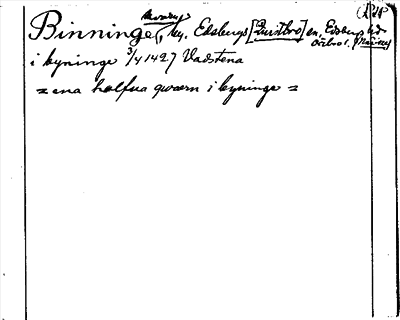 Binninge, ky. Edsbergs [Quistbro] sn. Edsbergs hd
Örebro l.
i byninge 3/4 1427 Vadstena
= ena halfua qwærn i byninge =